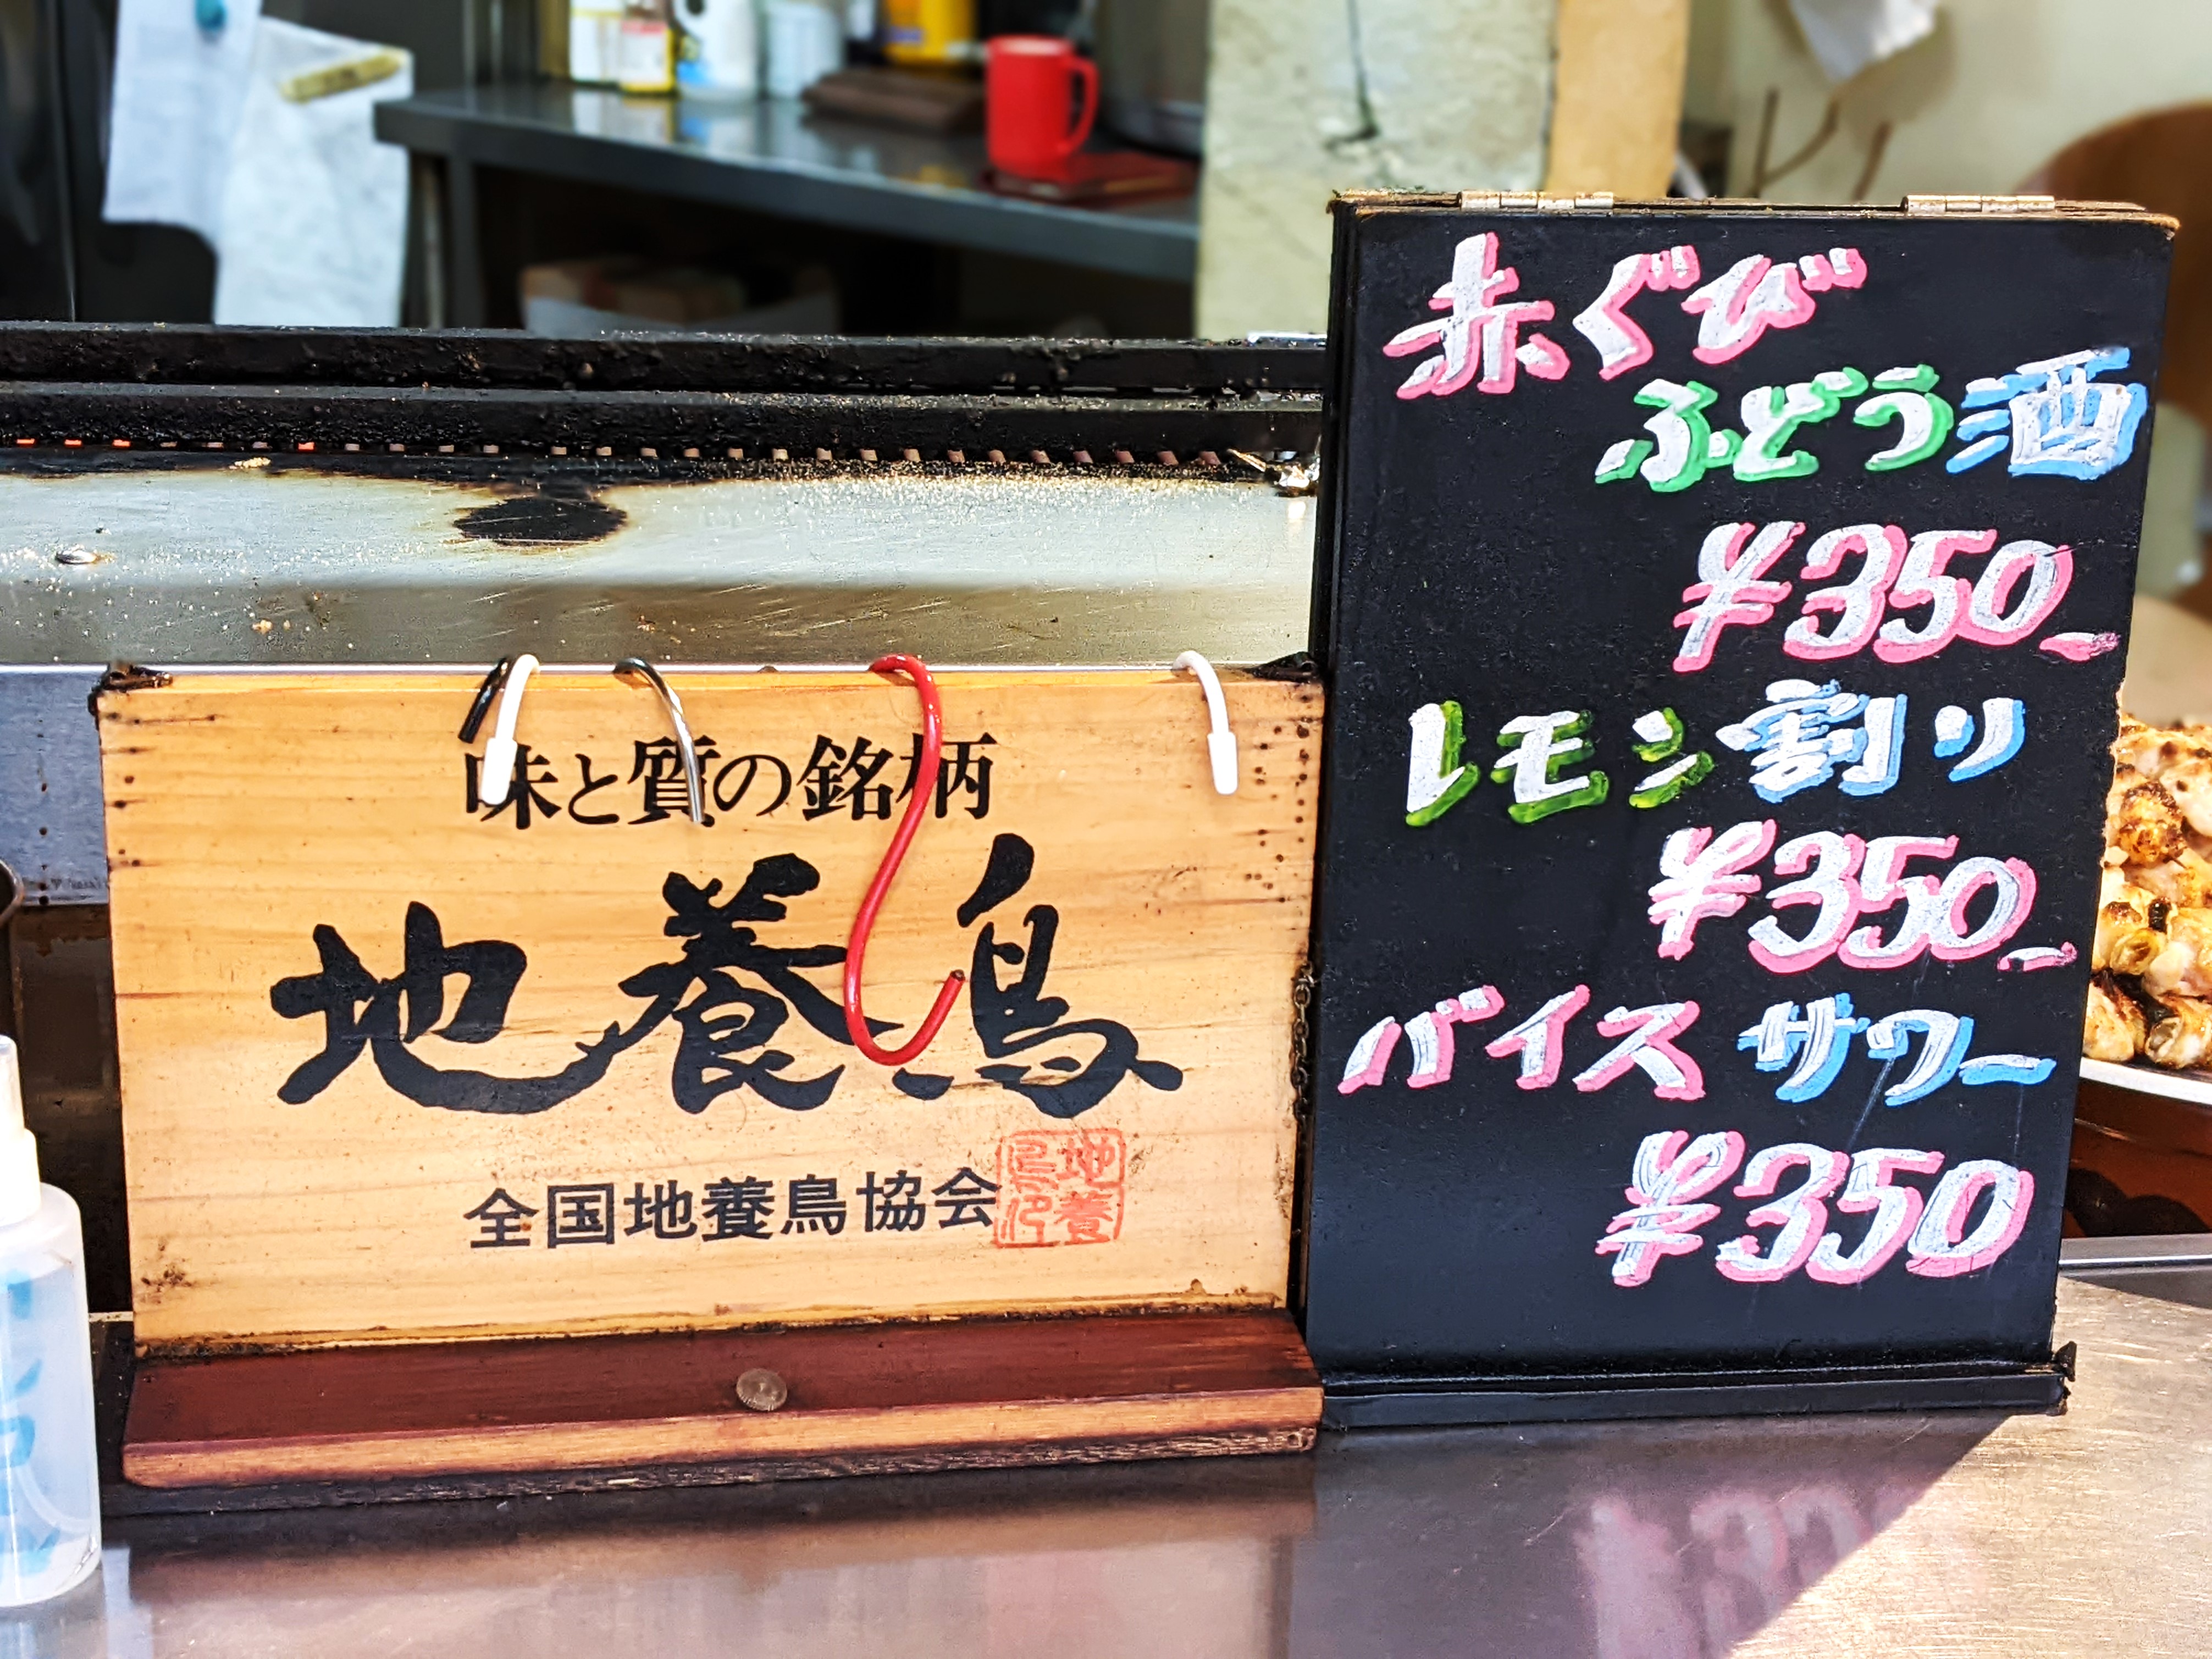 味と質の銘柄
地養鳥
全国地養鳥協会
地養
鳥印
赤ぐび
ぶどう酒
¥350-
レモン割り
¥350-
バイスサワー
¥350